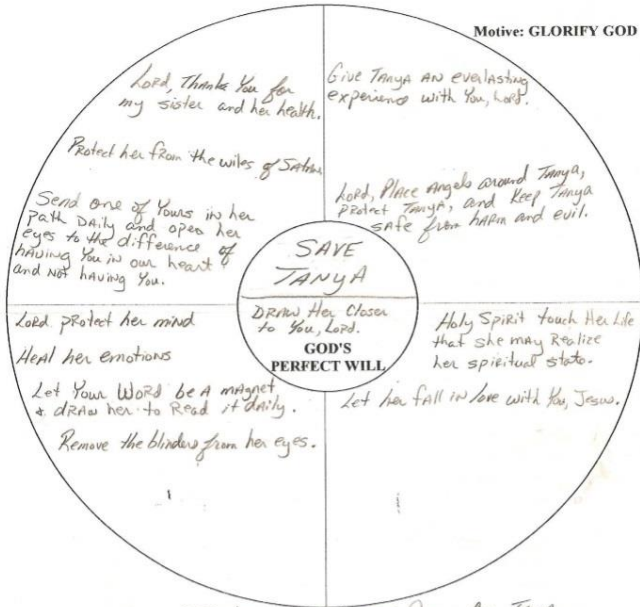 Motive: GLORIFY GOD
Lord, Thank You for
my sister and her health.
Protect her from the wiles of Satan
Send one of Yours in her
path DAily and open her
eyes to the difference of
having You in our heart
and not having You.
Give Tanya an everlasting
experience with You, Lord.
Lord, Place Angels around Tanya,
protect Tanya, and Keep Tanya
safe from harm and evil.
SAVE
TANYA
DRAW Her Closer
to You, Lord.
GOD'S
PERFECT WILL
Lord protect her mind
Heal her emotions
Let Your Word be A magnet
& draw her to Read it daily.
Remove the blinders from her eyes.
Holy Spirit touch Her Life
that she may Realize
her spiritual state.
Let her fall in love with You, Jesus.